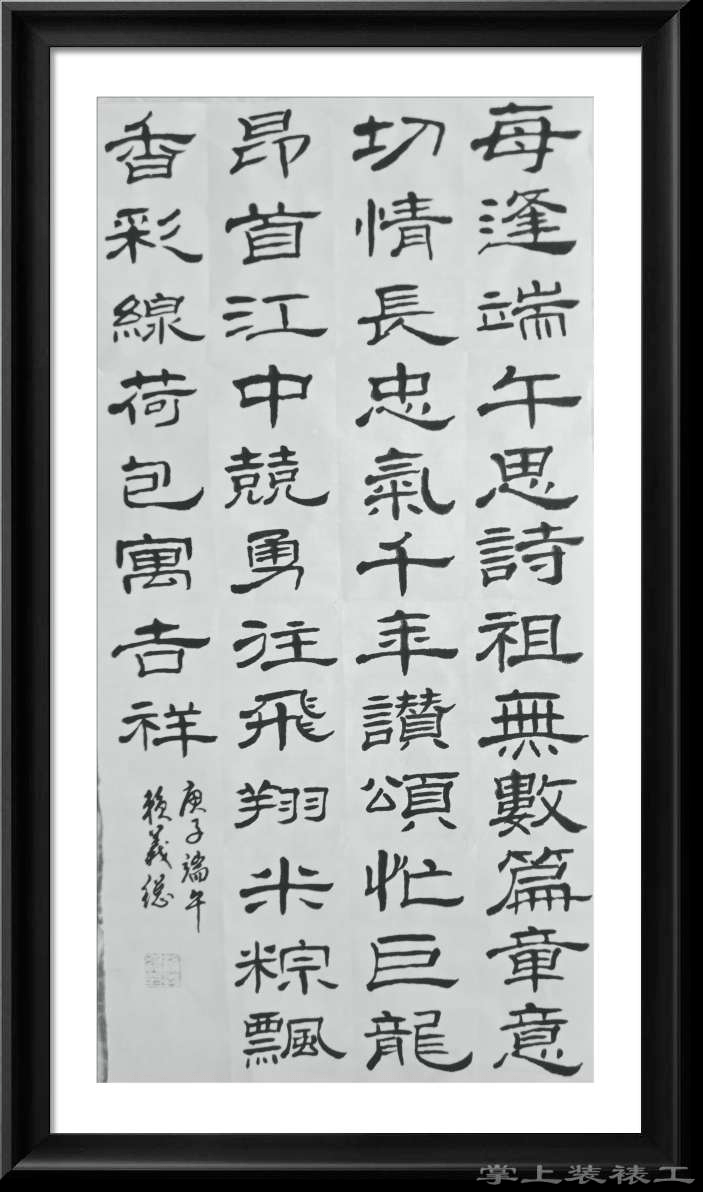 每逢端午思詩祖無數篇章意
切情長忠氣千年讃頌忙巨龍
昂首江中競勇往飛翔米粽飄
香彩線荷包寓吉祥
庚子端午
賴義總
掌上装裱工